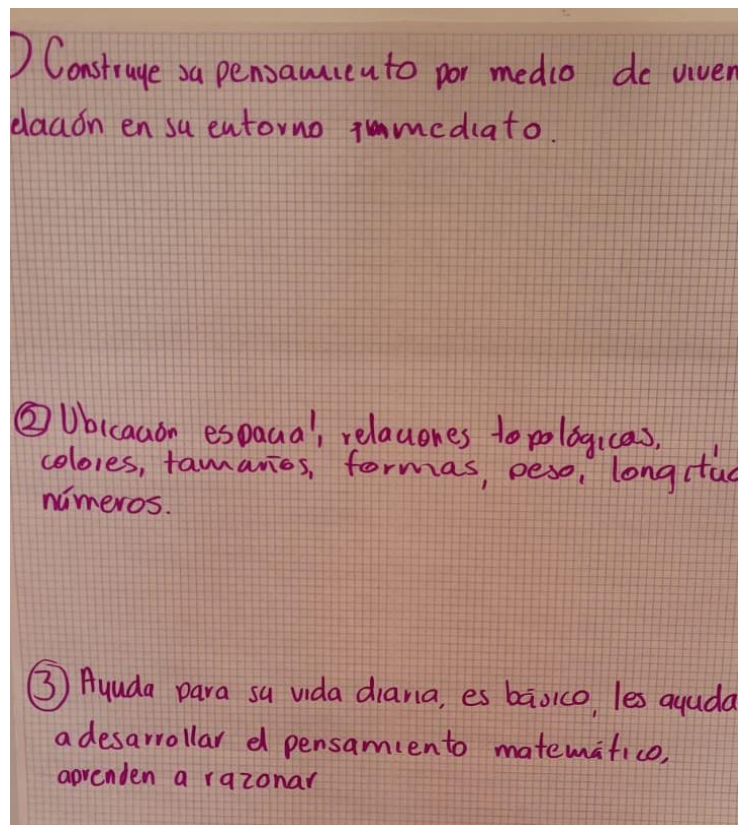 Construye su pensamiento por medio de viven
elación en su entorno immediato.
② Ubicación espacial, relaciones topológicas,
colores, tamaños, formas, peso, longitud
números.
③ Ayuda para su vida diaria, es básico, les ayuda
a desarrollar el pensamiento matemático,
aprenden a razonar